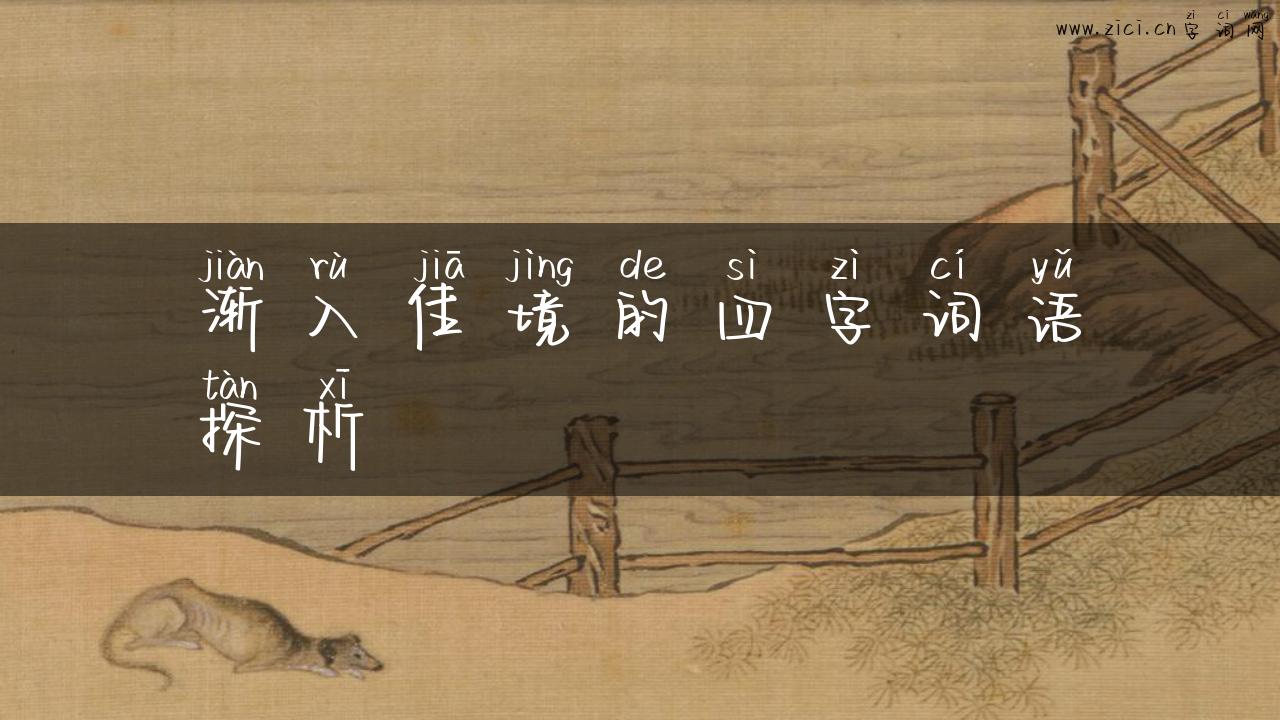 zì cí wǎng
www.zici.cn字词网
jiàn rù jiā jìng de sì zì cí yǔ
渐入佳境的四字词语
tàn xī
探析